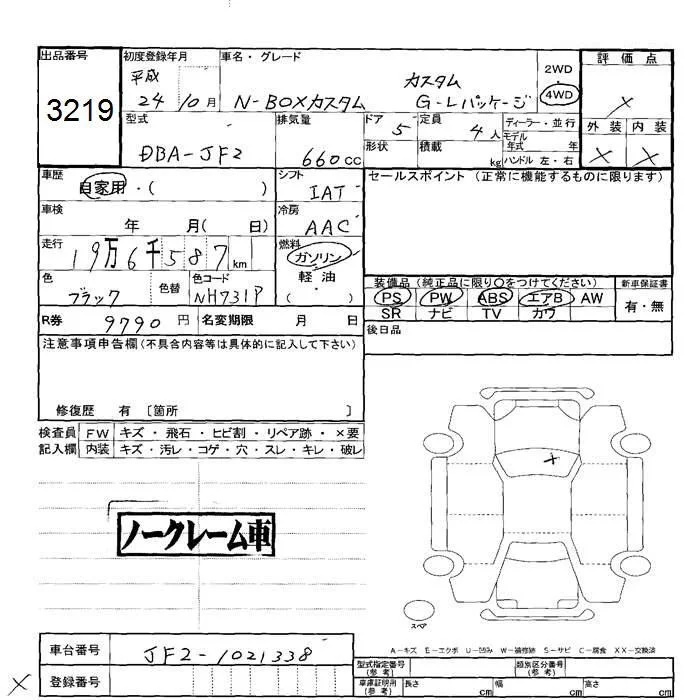 出品番号
3219
初度登録年月
平成
24 10月
車名・グレード
カスタム
N-BOXカスタム G-Lパッケージ
2WD
・
4WD
評価点
×
外装 内装
× ×
型式
DBA-JF2
排気量
660cc
ドア 5
形状
定員 4人
積載 kg
ディーラー・並行
モデル年式 年
ハンドル 左・右
車歴
自家用・( )
シフト
IAT
セールスポイント(正常に機能するものに限ります)
車検
年 月( 日)
冷房
AAC
走行
19万6千587km
燃料
ガソリン
軽油
( )
色
ブラック
色替
色コード
NH731P
装備品(純正品に限り〇をつけてください)
PS PW ABS エアB AW
SR ナビ TV カワ
新車保証書
有・無
R券 9790円
名変期限 月 日
後日品
注意事項申告欄(不具合内容等は具体的に記入して下さい)
修復歴 有 〔箇所 〕
検査員 FW キズ・飛石・ヒビ割・リペア跡・×要
記入欄 内装 キズ・汚レ・コゲ・穴・スレ・キレ・破レ
×
ノークレーム車
スペア
A-キズ E-エクボ U-凹み W-補修跡 S-サビ C-腐食 XX-交換済
車台番号 JF2-1021338
登録番号
×
型式指定番号(参考)
類別区分番号(参考)
車庫証明用(参考) 長さ cm 幅 cm 高さ cm